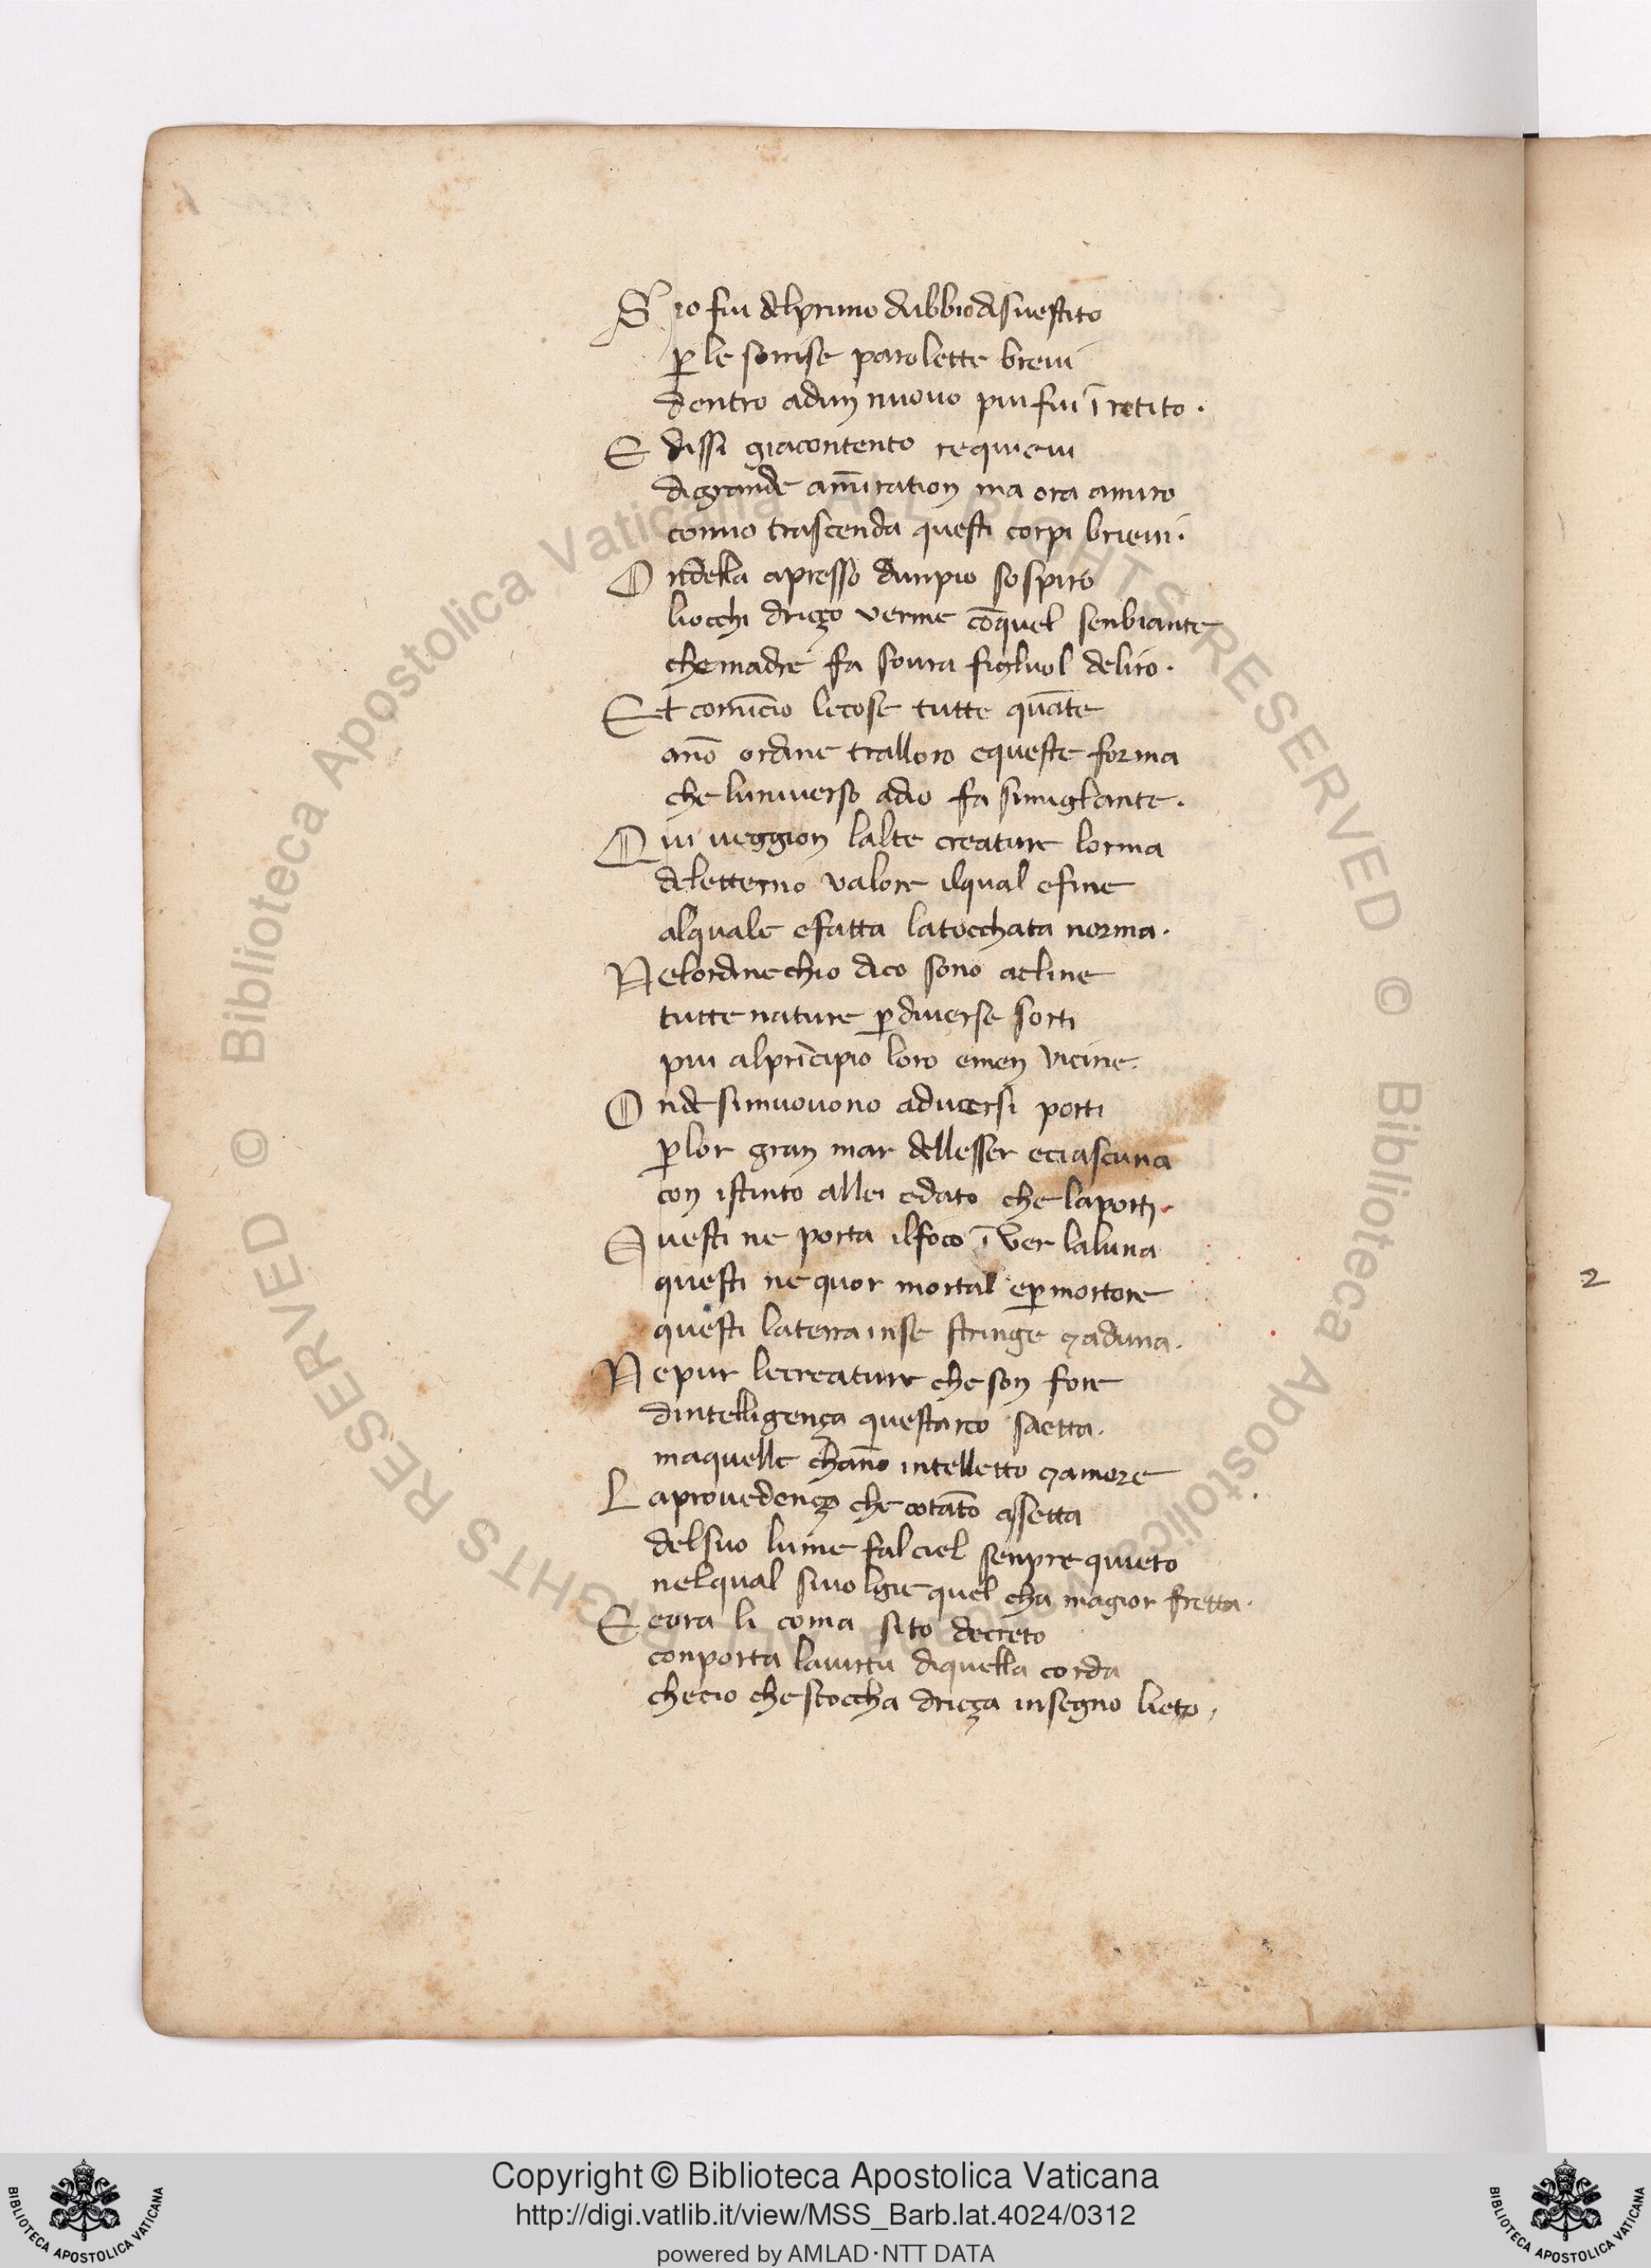 S io fui delprimo dubbio disuestito
ꝑ le sorrise parolette breui
dentro adun nuouo piu fui ī retito ·
E dissi giacontento requieui
digrande amīration ma ora amiro
comio trascenda questi corpi brieui ·
O ndella apresso dunpio sospiro
liocchi driço verme cōquel senbiante
chemadre fa soura figluol deliro ·
Et comīcio lecose tutte quāte
ano̅ ordine tralloro equeste forma
che luniuerso adio fa simiglante ·
Q ui ueggion lalte creature lorma
deletterno valore ilqual efine
alquale efatta latocchata norma ·
N elordinechio dico sono acline
tutte nature ꝑ diuerse sorti
piu alprīcipio loro emen vicine ·
O nde simuouono aduersi porti
ꝑ lor gran mar dellesser eciascuna
con istinto allei edato che laporti ·
Q uesti ne porta ilfoco ī ver laluna
questi ne quor mortal eꝑmortore
questi laterra inse stringe ⁊aduna ·
N epur lecreature cheson fore
dintelligença questarco saetta ·
maquelle cħano̅ intelletto ⁊amore
L aprouedença che cotāto assetta
delsuo lume falciel senpre quieto
nelqual siuolgie quel cha magior fretta ·
E eora li coma sito decreto
conporta lauirtu diquella corda
checio chescoccha driça insegno lieto ·
2
© Biblioteca Apostolica Vaticana ALL RIGHTS RESERVED © Biblioteca Apostolica Vaticana ALL RIGHTS RESERVED
Copyright © Biblioteca Apostolica Vaticana
http://digi.vatlib.it/view/MSS_Barb.lat.4024/0312
powered by AMLAD·NTT DATA
BIBLIOTECA APOSTOLICA VATICANA
BIBLIOTECA APOSTOLICA VATICANA